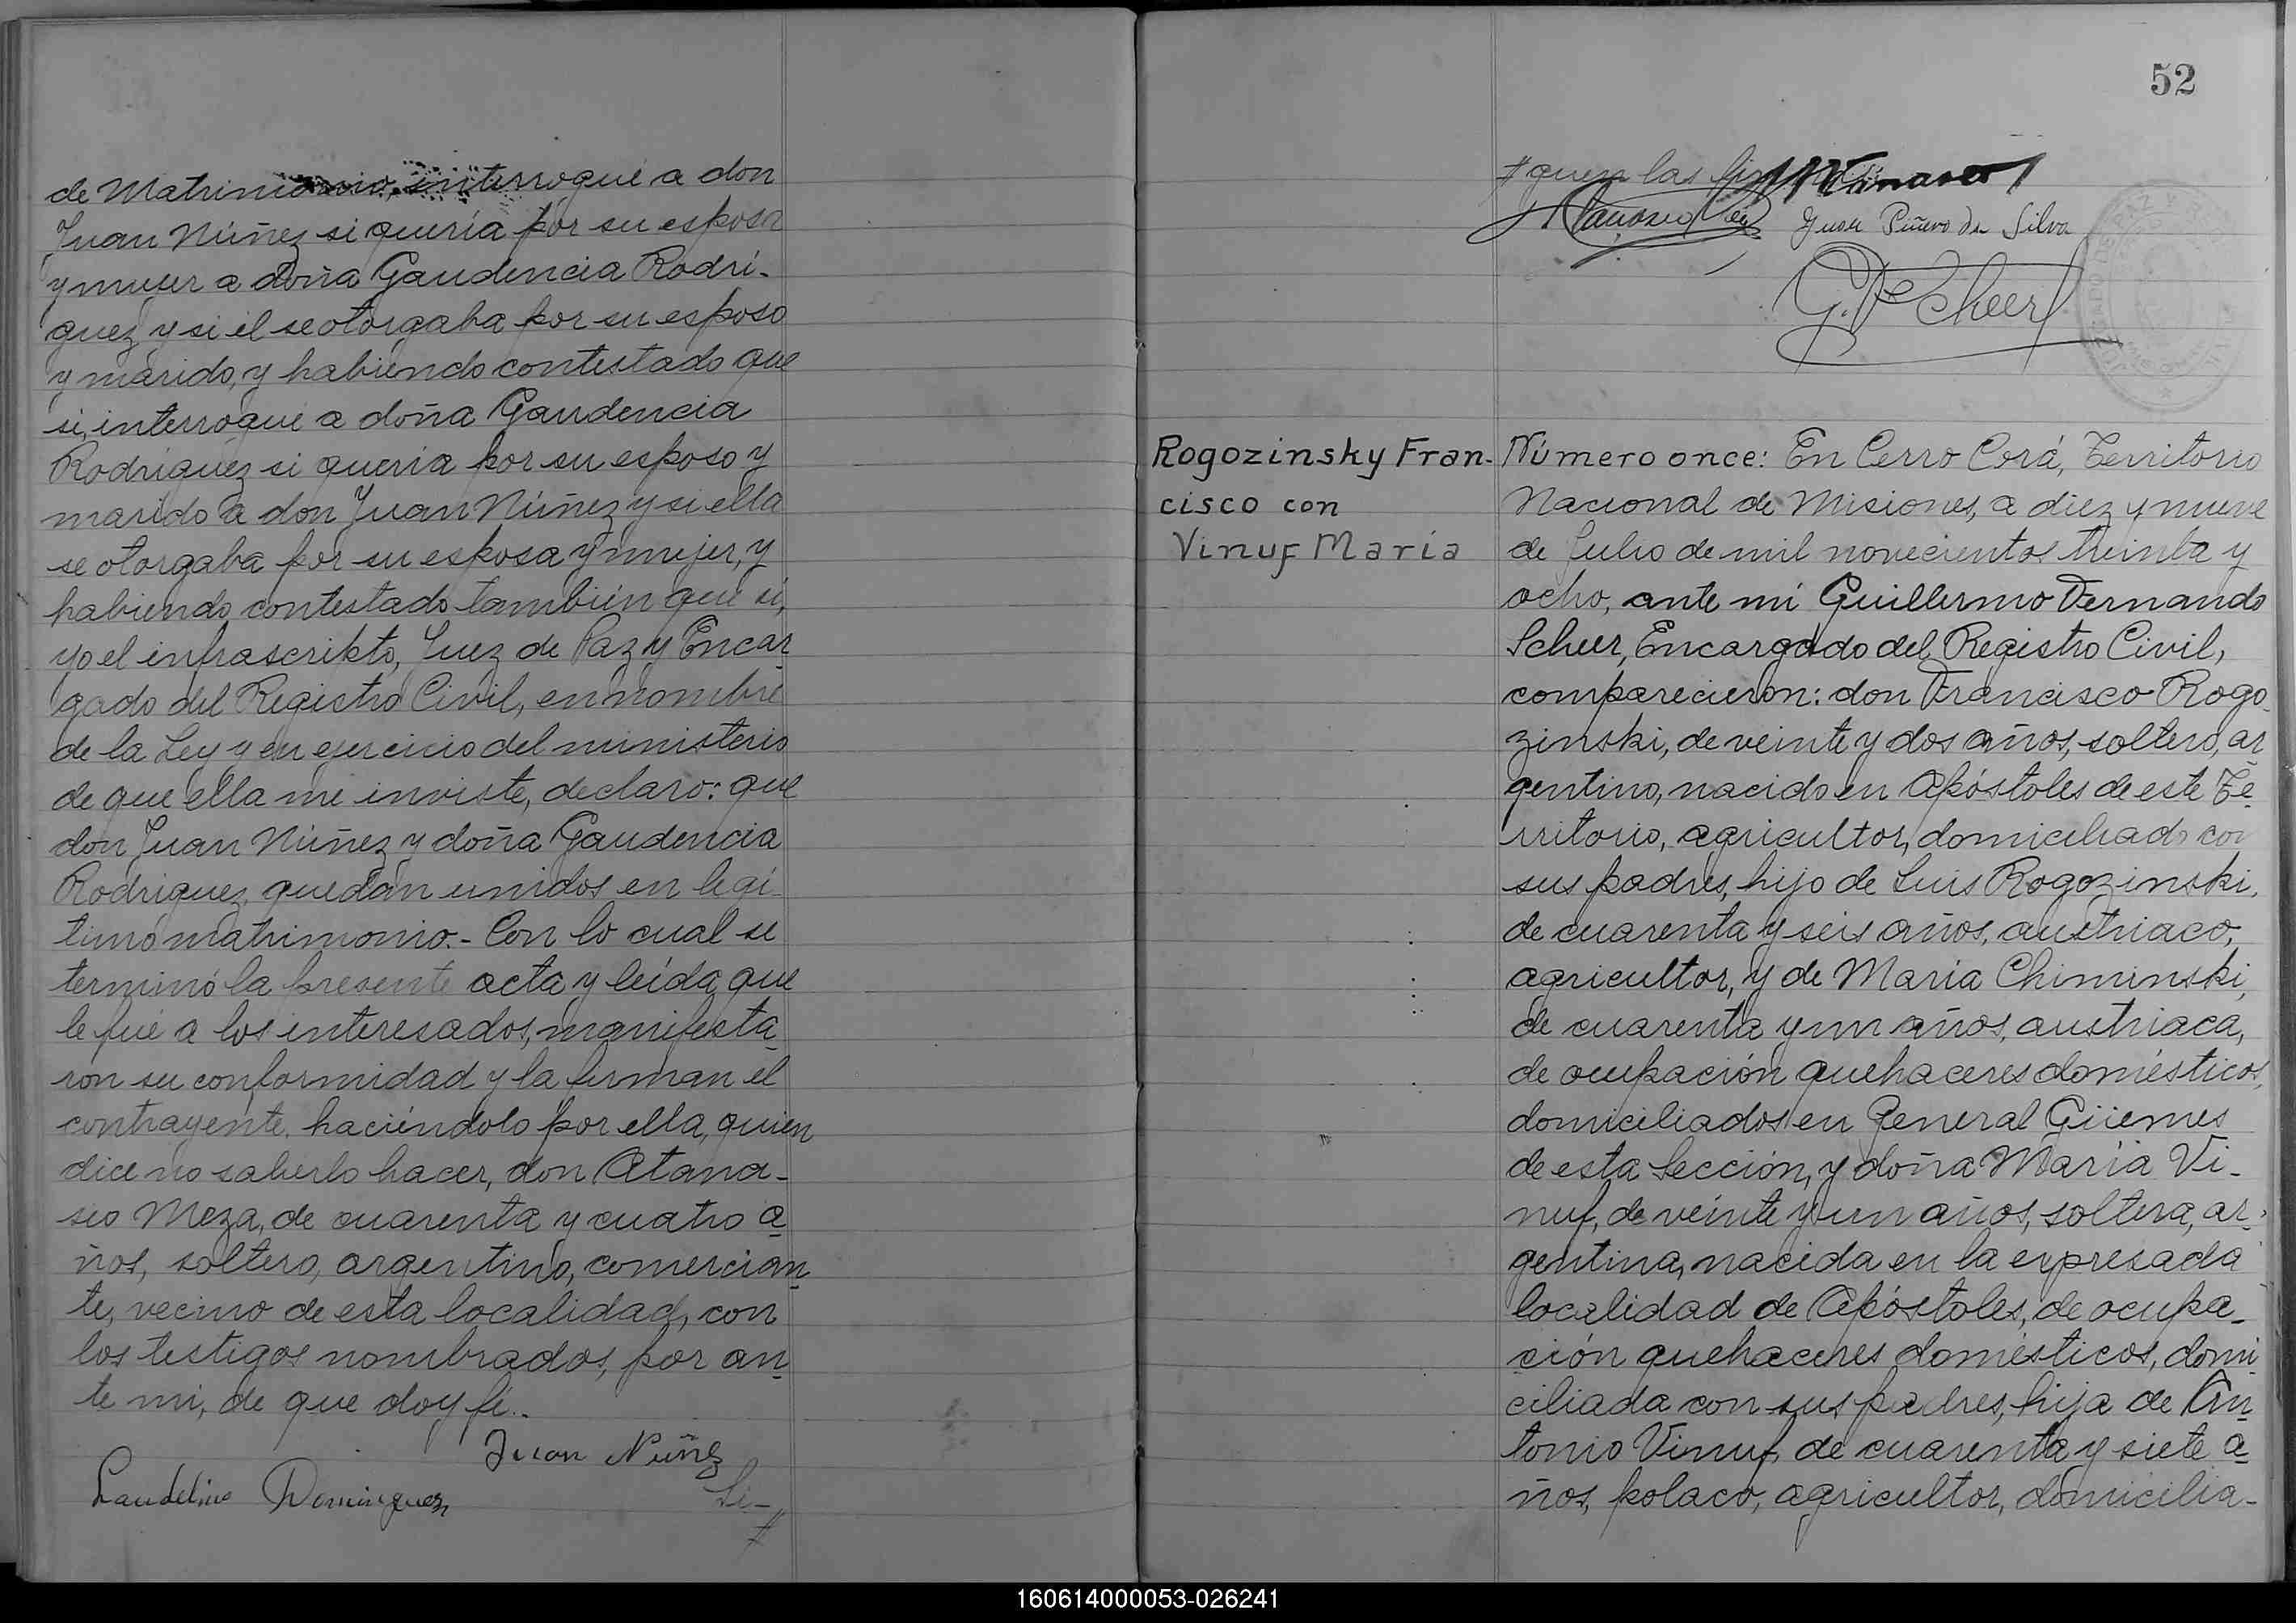 de Matrimonio, interrogué a don
Juan Núñez si quería por su esposa
y mujer a doña Gaudencia Rodrí-
guez y si él se otorgaba por su esposo
y marido, y habiendo contestado que
si, interrogué a doña Gaudencia
Rodríguez si quería por su esposo y
marido a don Juan Núñez y si ella
se otorgaba por su esposa y mujer, y
habiendo contestado también que si,
yo el infrascripto, Juez de Paz y Encar
gado del Registro Civil, en nombre
de la Ley y en ejercicio del ministerio
de que ella me inviste, declaro: que
don Juan Núñez y doña Gaudencia
Rodríguez, quedan unidos en legí-
timo matrimonio.- Con lo cual se
terminó la presente acta y leída que
le fué a los interesados, manifesta
ron su conformidad y la firman el
contrayente, haciéndolo por ella, quien
dice no saberlo hacer, don Atana-
sio Meza, de cuarenta y cuatro a
ños, soltero, argentino, comercian
te, vecino de esta localidad, con
los testigos nombrados, por an
te mi, de que doy fé..
Juan Núñez
Laudelino Dominguez
Si-
#
52
# guen las
Juan Piñero Da Silva
G. F. Scheer
Rogozinsky Fran-
cisco con
Vinuf María
Número once: En Cerro Corá, Territorio
Nacional de Misiones, a diez y nueve
de Julio de mil novecientos treinta y
ocho, ante mi Guillermo Fernando
Scheer, Encargado del Registro Civil,
comparecieron: don Francisco Rogo
zinski, de veinte y dos años, soltero, ar
gentino, nacido en Apóstoles de este Te
rritorio, agricultor, domiciliado con
sus padres, hijo de Luis Rogozinski,
de cuarenta y seis años, austriaco,
agricultor, y de María Chiminski,
de cuarenta y un años, austriaca,
de ocupación quehaceres domésticos,
domiciliados en General Güemes
de esta Sección, y doña María Vi-
nuf, de veinte y un años, soltera, ar-
gentina, nacida en la expresada
localidad de Apóstoles, de ocupa-
ción quehaceres domésticos, domi
ciliada con sus padres, hija de An
tonio Vinuf, de cuarenta y siete a
ños, polaco, agricultor, domicilia-
160614000053-026241